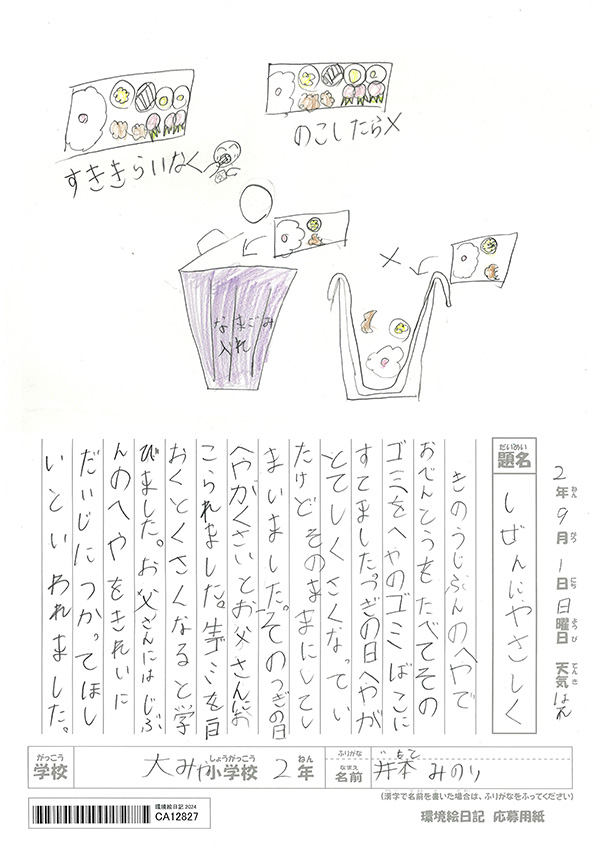 すききらいなく
のこしたら×
×
なまごみ
入れ
2年9月1日日曜日 天気はれ
ねん がつ にち ようび てんき
だいめい
題名
しぜんにやさしく
きのうじぶんのへやで
おべんとうをたべてその
ゴミをへやのゴミばこに
すてましたつぎの日へやが
とてしくさくなってい
たけどそのままにしてし
まいました。そのつぎの日
へやがくさいとお父さんにお
こられました。生ゴミを百
おくとくさくなると学
びました。お父さんにはじぶ
んのへやをきれいに
だいじにつかってほし
いといわれました。
がっこう
学校
大みか小学校 2年
しょうがっこう ねん
ふりがな
なまえ
名前
井本 みのり
(漢字で名前を書いた場合は、ふりがなをふってください)
環境絵日記2024
CA12827
環境絵日記 応募用紙